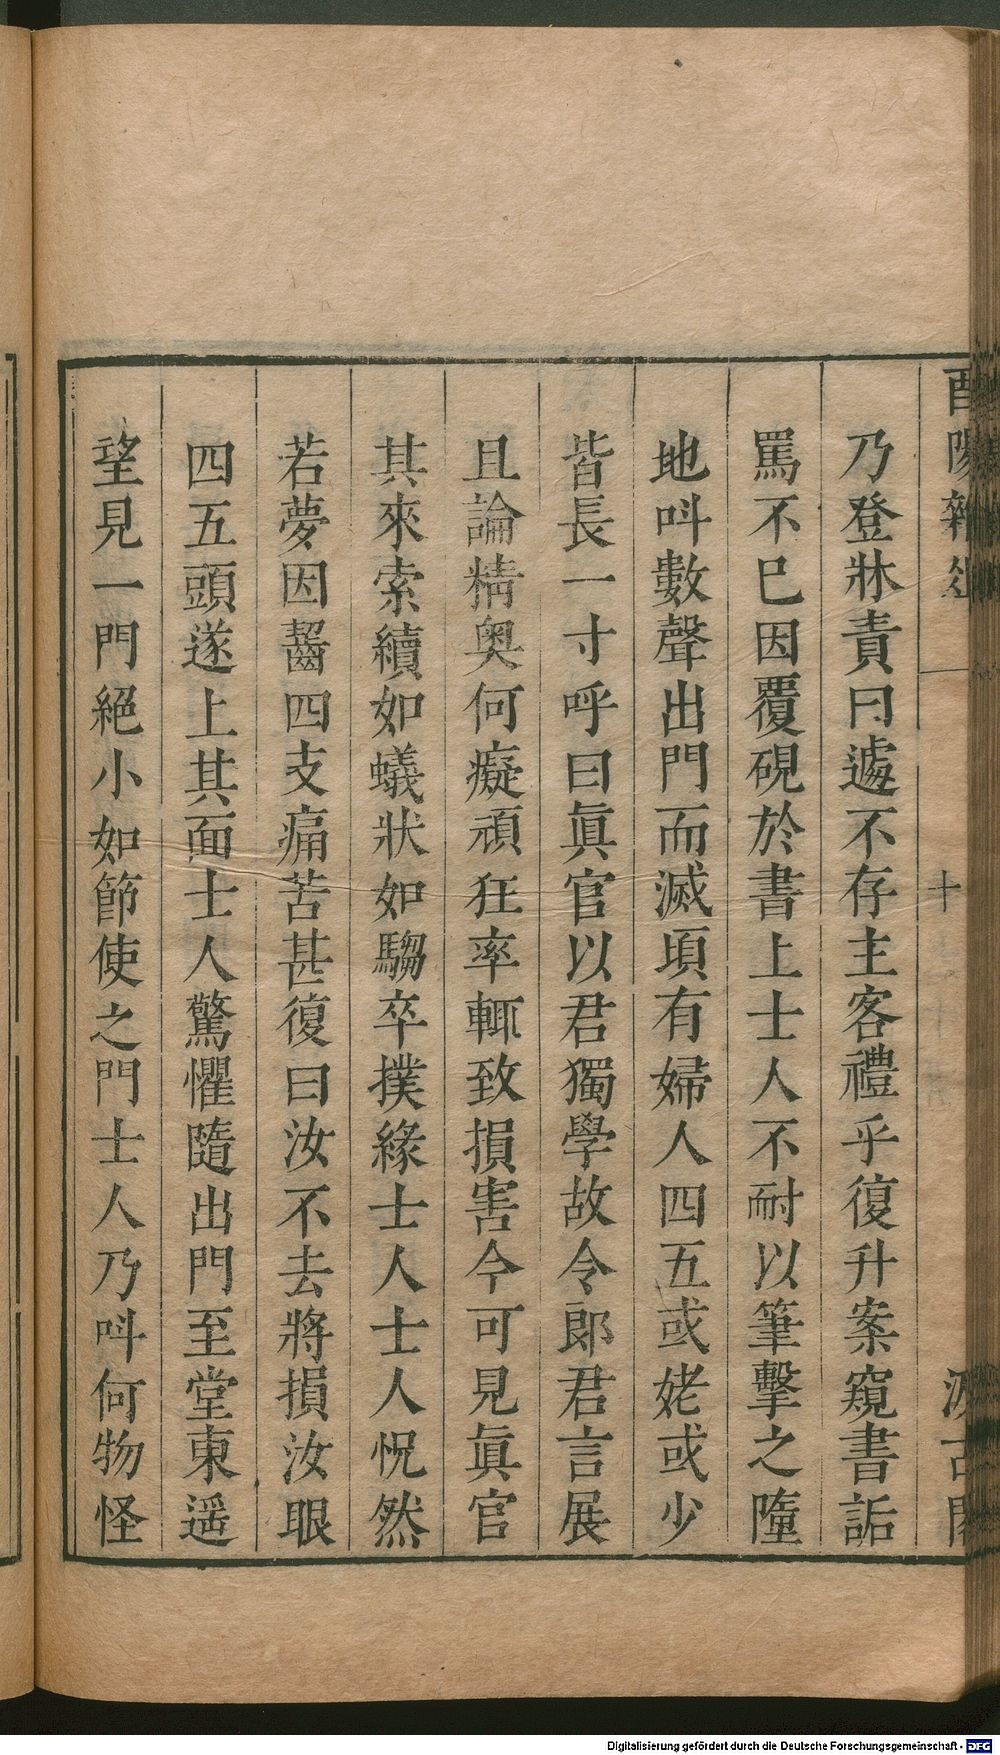 酉陽雜俎
十
汲古閣
乃登牀責曰遽不存主客禮乎復升案窺書詬
罵不已因覆硯於書上士人不耐以筆擊之墮
地叫數聲出門而滅頃有婦人四五或姥或少
皆長一寸呼曰眞官以君獨學故令郎君言展
且論精奧何癡頑狂率輒致損害今可見眞官
其來索續如蟻狀如騶卒撲緣士人士人怳然
若夢因齧四支痛苦甚復曰汝不去將損汝眼
四五頭遂上其面士人驚懼隨出門至堂東遥
望見一門絕小如節使之門士人乃叫何物怪
Digitalisierung gefördert durch die Deutsche Forschungsgemeinschaft - DFG